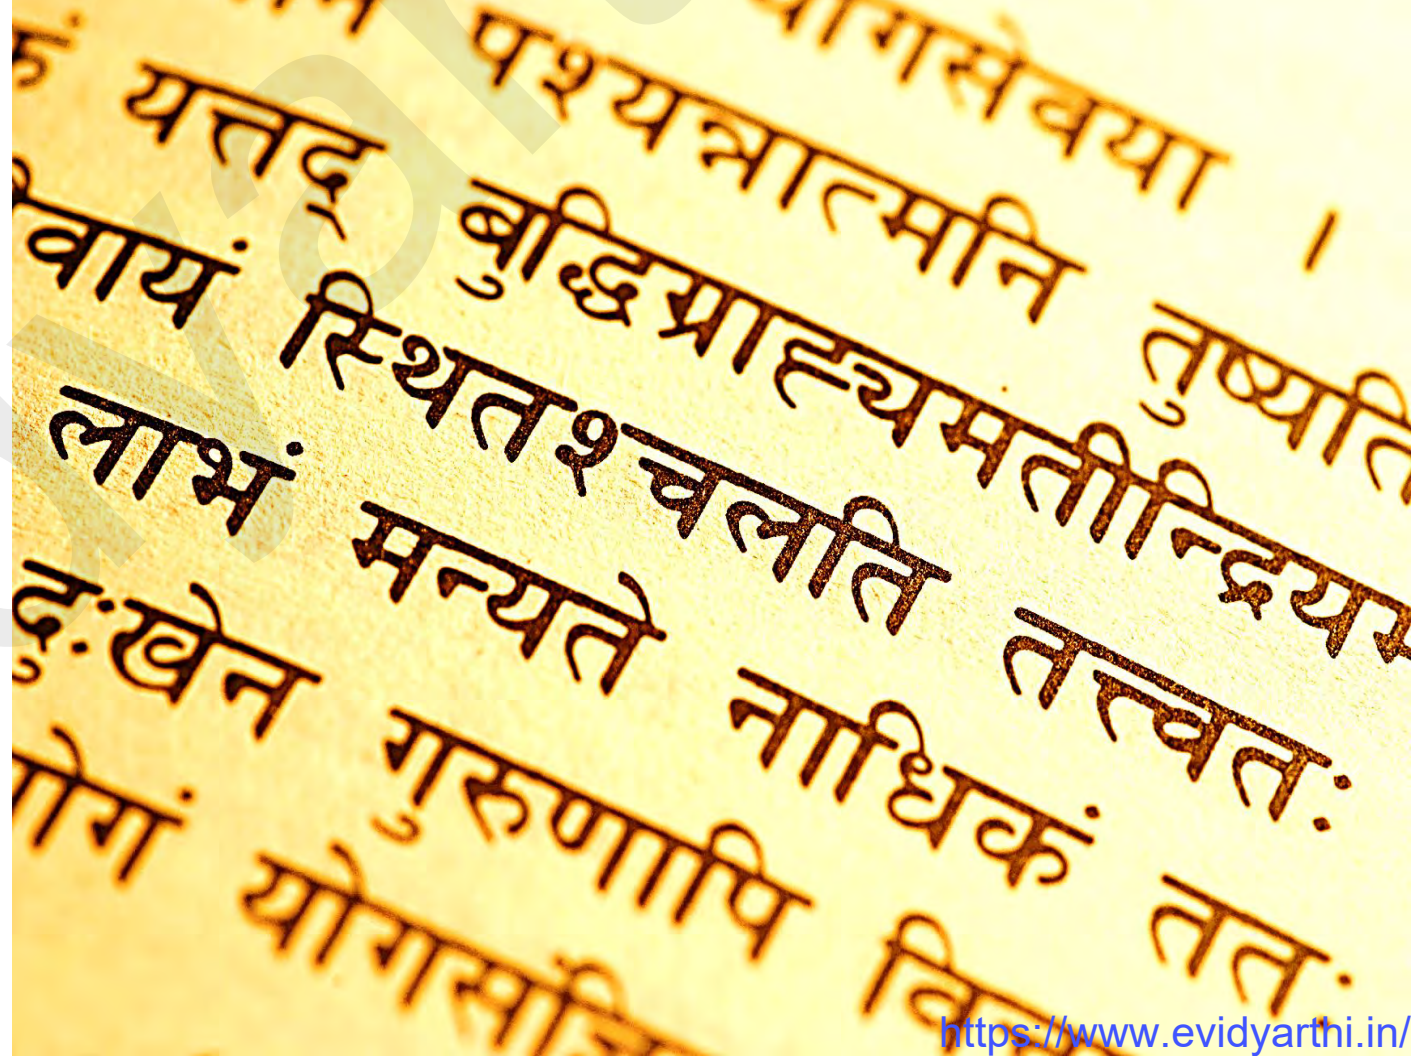 योगसेवया ।
पश्यन्नात्मनि तुष्यति
यत्तद् बुद्धिग्राह्यमतीन्द्रियम
वायं स्थितश्चलति तत्त्वतः
लाभं मन्यते नाधिकं ततः
दुःखेन गुरुणापि वि
योगं योगसंज्ञि
https://www.evidyarthi.in/